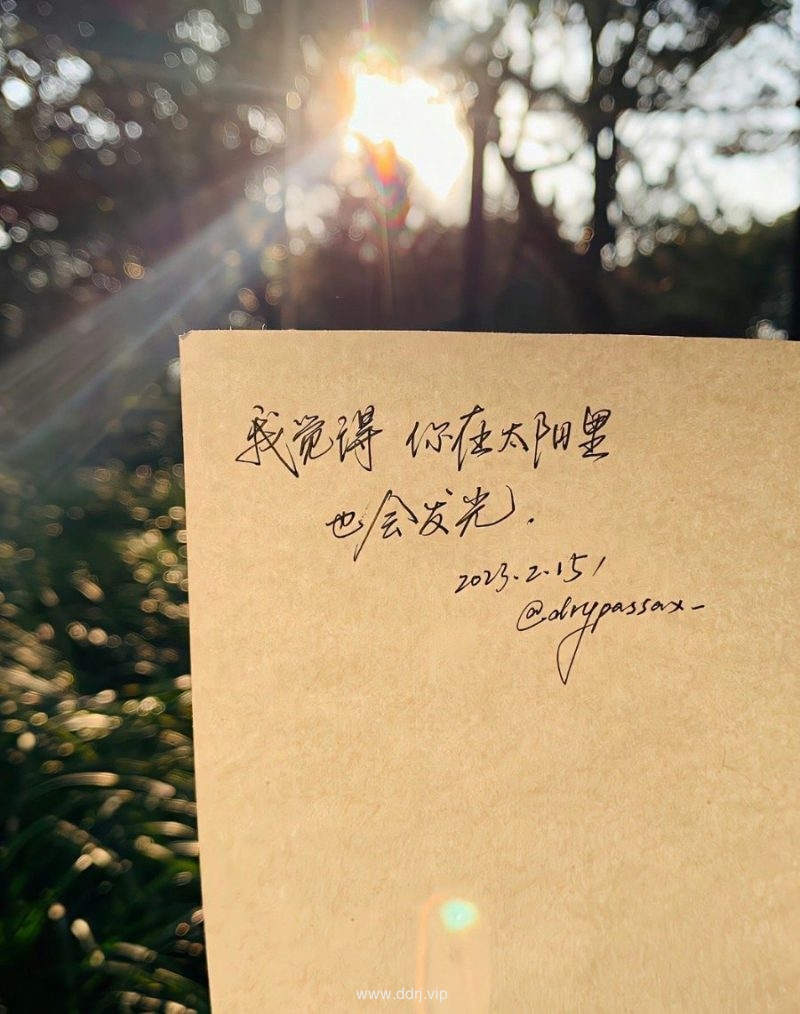 我觉得 你在太阳里
也会发光.
2023.2.15/
@drypassax-
www.ddrj.vip